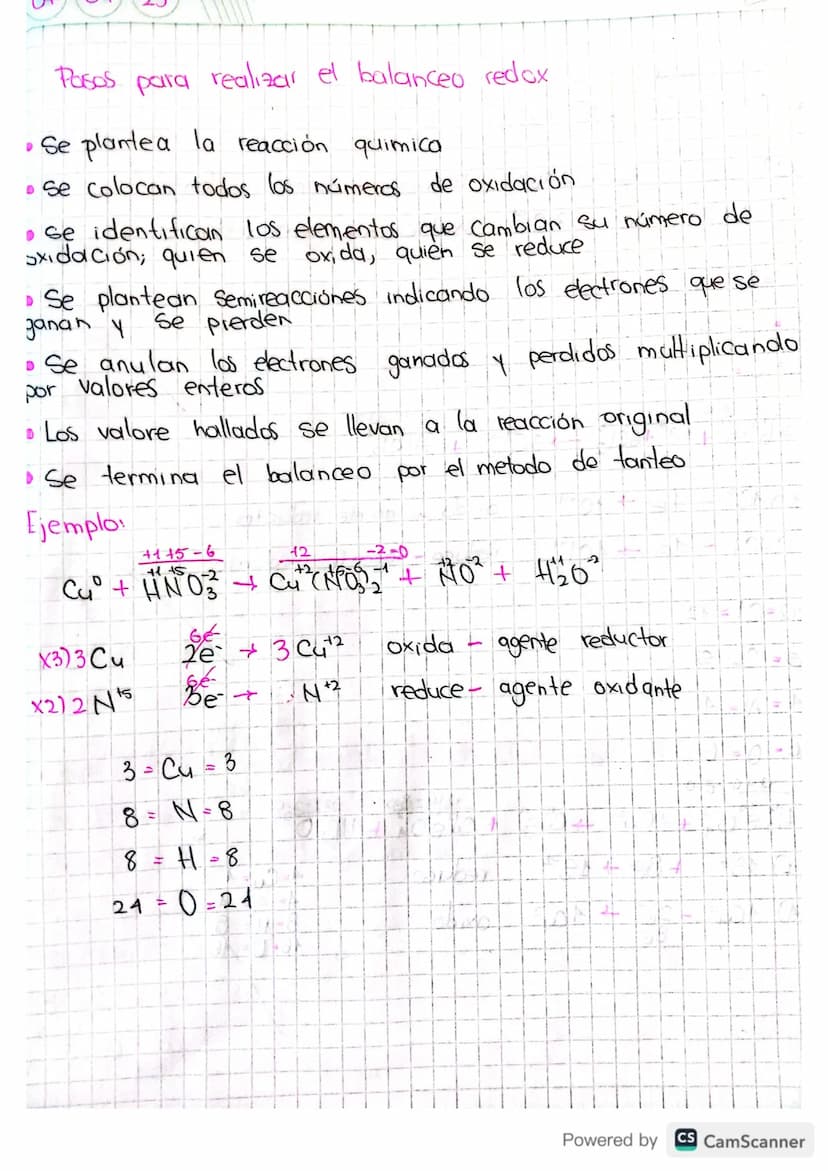 Pasos para realizar el balanceo redox
• Se plantea la reacción quimica
• Se colocan todos los números de oxidación
• Se identifican los elementos que cambian su número de
oxidación; quién se oxida, quién se reduce
• Se plantean semireacciónes indicando los electrones que se
ganan y se pierden
• Se anulan los electrones ganados y perdidos multiplicando
por valores enteros
• Los valore hallados se llevan a la reacción original
• Se termina el balanceo por el metodo de tanteo
Ejemplo:
+1+5-6 +2 -2=0
Cu⁰ + H⁺¹N⁺⁵O₃⁻² → Cu⁺²(NO₃)₂⁻¹ + N⁺²O⁻² + H₂⁺¹O⁻²
6e⁻
x3) 3Cu 2e⁻ → 3Cu⁺² oxida - agente reductor
6e⁻
x2) 2N⁺⁵ 3e⁻ → N⁺² reduce - agente oxidante
3 = Cu = 3
8 = N = 8
8 = H = 8
24 = O = 24
Powered by CS CamScanner